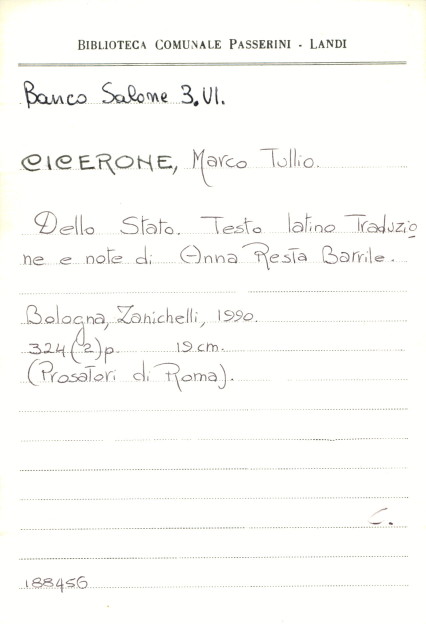 BIBLIOTECA COMUNALE PASSERINI - LANDI
Banco Salone 3.VI.
CICERONE, Marco Tullio.
Dello Stato. Testo latino Traduzio
ne e note di Anna Resta Barrile.
Bologna, Zanichelli, 1990.
324(2)p. 19 cm.
(Prosatori di Roma).
C.
188456